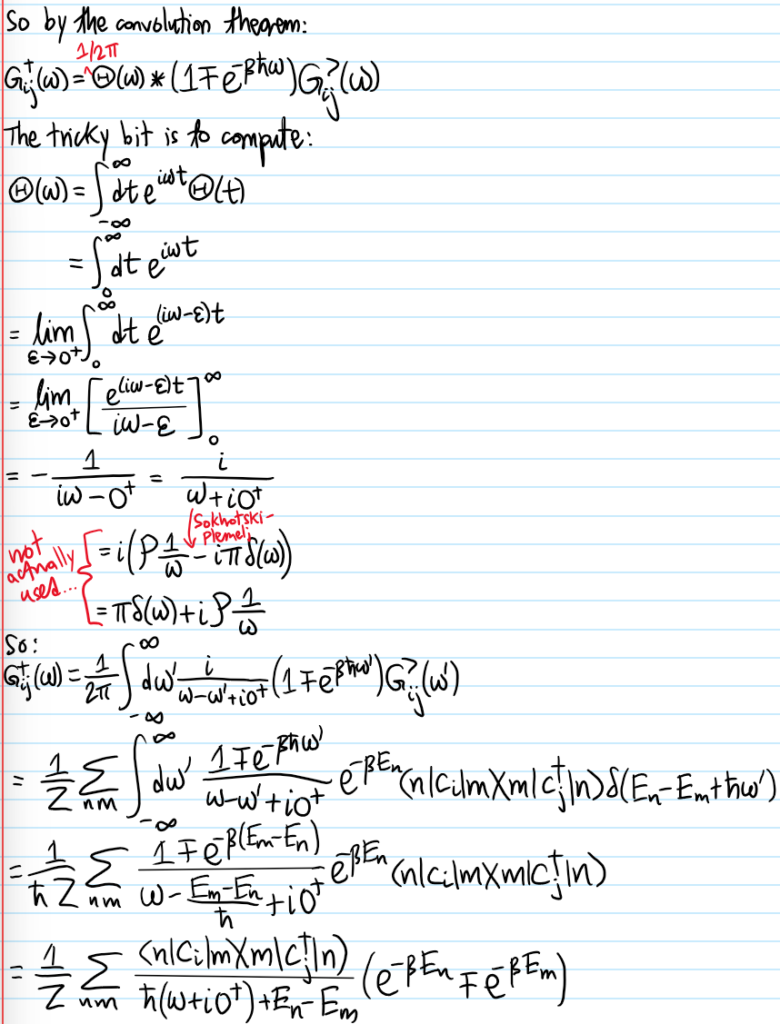 So by the convolution theorem:
1/2π
G⁺ᵢⱼ(ω) = ^Θ(ω) * (1∓e^{-βħω})G^>ᵢⱼ(ω)
The tricky bit is to compute:
Θ(ω) = ∫_{-∞}^{∞} dt e^{iωt} Θ(t)
= ∫_0^∞ dt e^{iωt}
= lim_{ε→0⁺} ∫_0^∞ dt e^{(iω-ε)t}
= lim_{ε→0⁺} [e^{(iω-ε)t}/(iω-ε)]_0^∞
= -1/(iω-0⁺) = i/(ω+i0⁺)
Sokhotski-
Plemelj
not actually used... = i(P 1/ω - iπδ(ω))
= πδ(ω) + iP 1/ω
So:
G⁺ᵢⱼ(ω) = 1/2π ∫_{-∞}^{∞} dω' i/(ω-ω'+i0⁺) (1∓e^{-βħω'})G^>ᵢⱼ(ω')
= 1/Z Σ_{nm} ∫_{-∞}^{∞} dω' (1∓e^{-βħω'})/(ω-ω'+i0⁺) e^{-βEₙ}⟨n|cᵢ|m⟩⟨m|cⱼ†|n⟩δ(Eₙ-Eₘ+ħω')
= 1/(ħZ) Σ_{nm} (1∓e^{-β(Eₘ-Eₙ)})/(ω-(Eₘ-Eₙ)/ħ+i0⁺) e^{-βEₙ}⟨n|cᵢ|m⟩⟨m|cⱼ†|n⟩
= 1/Z Σ_{nm} ⟨n|cᵢ|m⟩⟨m|cⱼ†|n⟩/(ħ(ω+i0⁺)+Eₙ-Eₘ) (e^{-βEₙ}∓e^{-βEₘ})